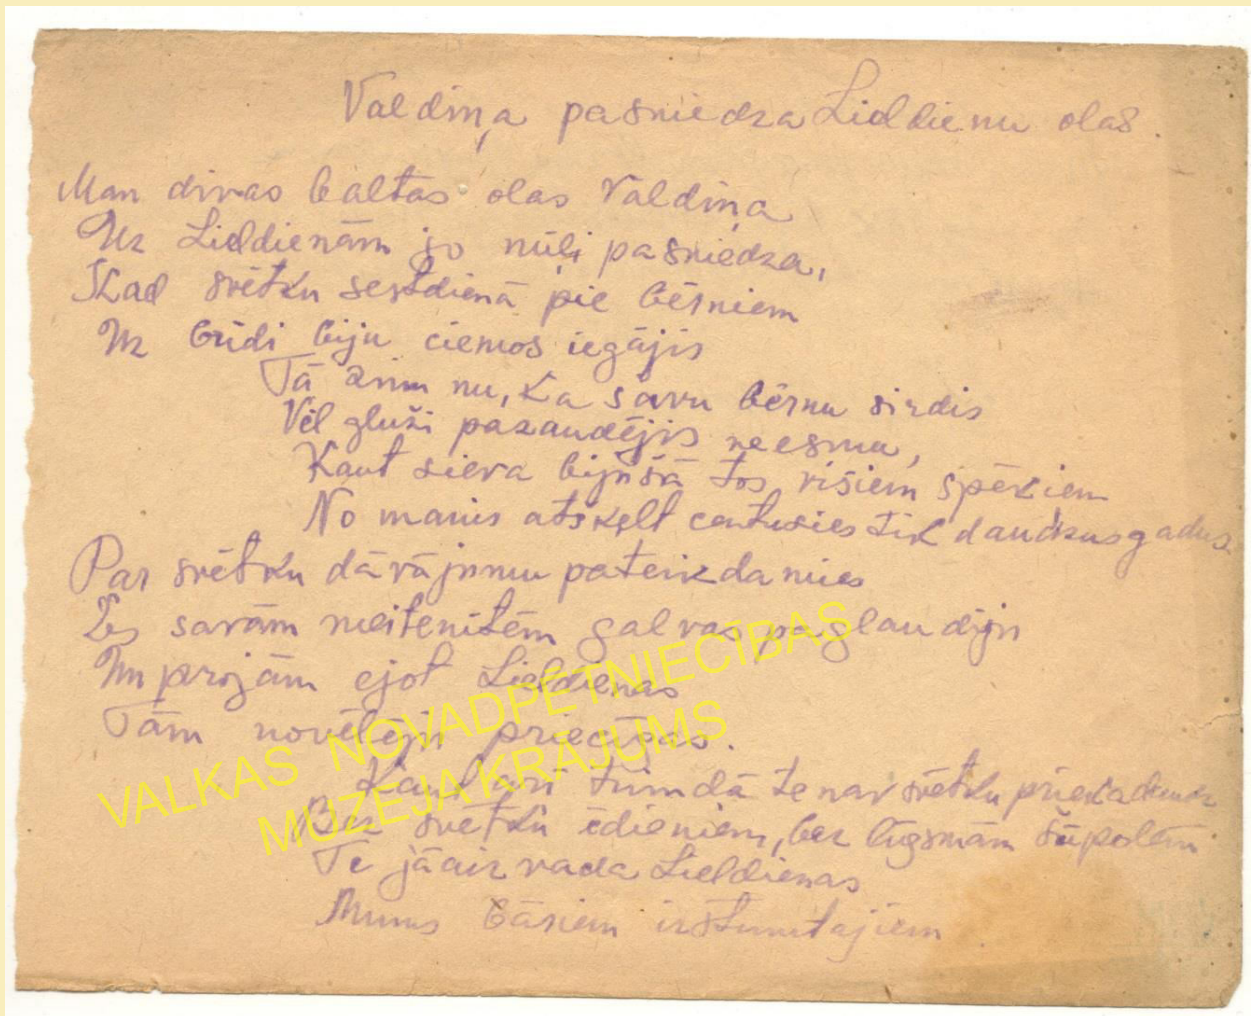 Valdiņa pasniedza Lieldienu olas.
Man divas baltas olas Valdiņa
Uz Lieldienām jo mīļi pasniedza,
Kad svētku sestdienā pie bērniem
Uz brīdi biju ciemos iegājis
Tā zinu nu, ka savu bērnu sirdis
Vēl gluži pazaudējis neesmu,
Kaut sieva bijušā tos visiem spēkiem
No manis atšķelt centusies tik daudzus gadus.
Par svētku dāvājumu pateikdamies
Es savām meitenītēm galvas paglaudīju
Un projām ejot Lieldienas
Tām novēlēju priecīgas.
Kaut arī trimdā te nav svētku
Bez svētku ēdieniem, bez līgsmām šūpolēm
Te jāaizvada Lieldienas
Mums bāriem izstumtajiem
VALKAS NOVADPĒTNIECĪBAS
MUZEJA KRĀJUMS